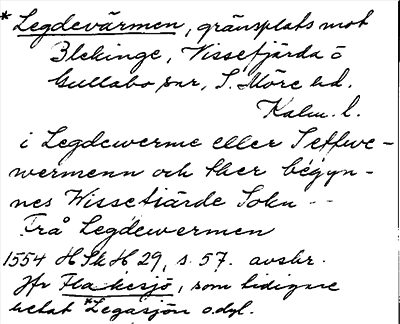 *Legdevärmen, gränsplats mot
Blekinge, Vissefjärda o
Gullabo snr, S. Möre hd.
Kalm. l.
i Legdewerme eller Seffwe-
wermenn och ther begyn-
nes Wissefiärde Sokn --
Frå Legdewermen
1554 HSkH 29, s. 57. avskr.
Jfr Flakesjö, som tidigare
hetat *Legasjön o.dyl.